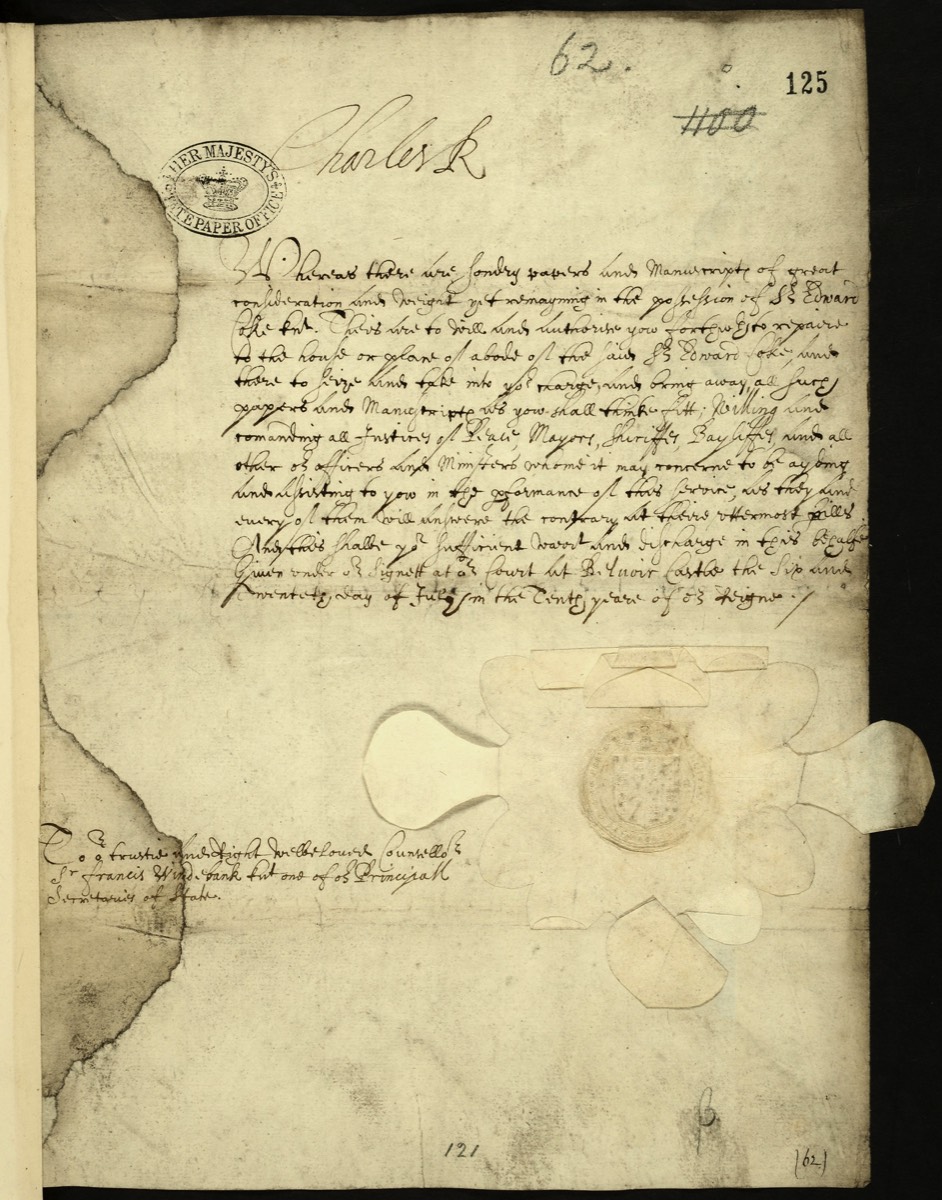 62.
125
1100
Charles R
HER MAJESTY'S
STATE PAPER OFFICE
Whereas there are sondry papers and Manuscripts of great
consideration and weight yet remayning in the possession of Sr Edward
Coke knt. Theis are to will and authorise yow forthwth to repaire
to the house or place of abode of the said Sr Edward Coke, and
there to seize and take into yor charge, and bring away all such
papers and Manuscripts as yow shall thinke fitt; Willing and
comanding all Justices of Peace, Mayors, Shiriffes, Bayliffes, and all
other or officers and Ministers whome it may concerne to be ayding
and assisting to yow in the pformance of this service, as they and
every of them will answere the contrary at theire uttermost perills
And this shalbe yor sufficient warrt and discharge in this behalfe
Given under or Signett at or Court at Belvoir Castle the Six and
Twenteth day of July in the Tenth yeare of or Reigne
To or trustie and Right welbeloved Counsellor
Sr Francis Windebank knt one of or Principall
Secretaries of State.
121
(62)